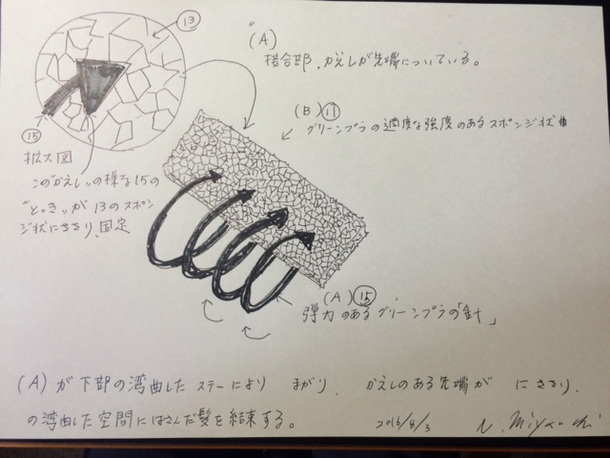 13
"(A)
接合部、かえしが先端についている。
(B) 11
グリーンプラの適度な強度のあるスポンジ状
15
拡大図
この"かえし〟の様な15の
"とっき〟が13のスポン
ジ状にささり、固定
(A) 15
弾力のあるグリーンプラの「針」
(A)が下部の湾曲したステーにより まがり、かえしのある先端が にささり、
の湾曲した空間にはさんだ髪を結束する。